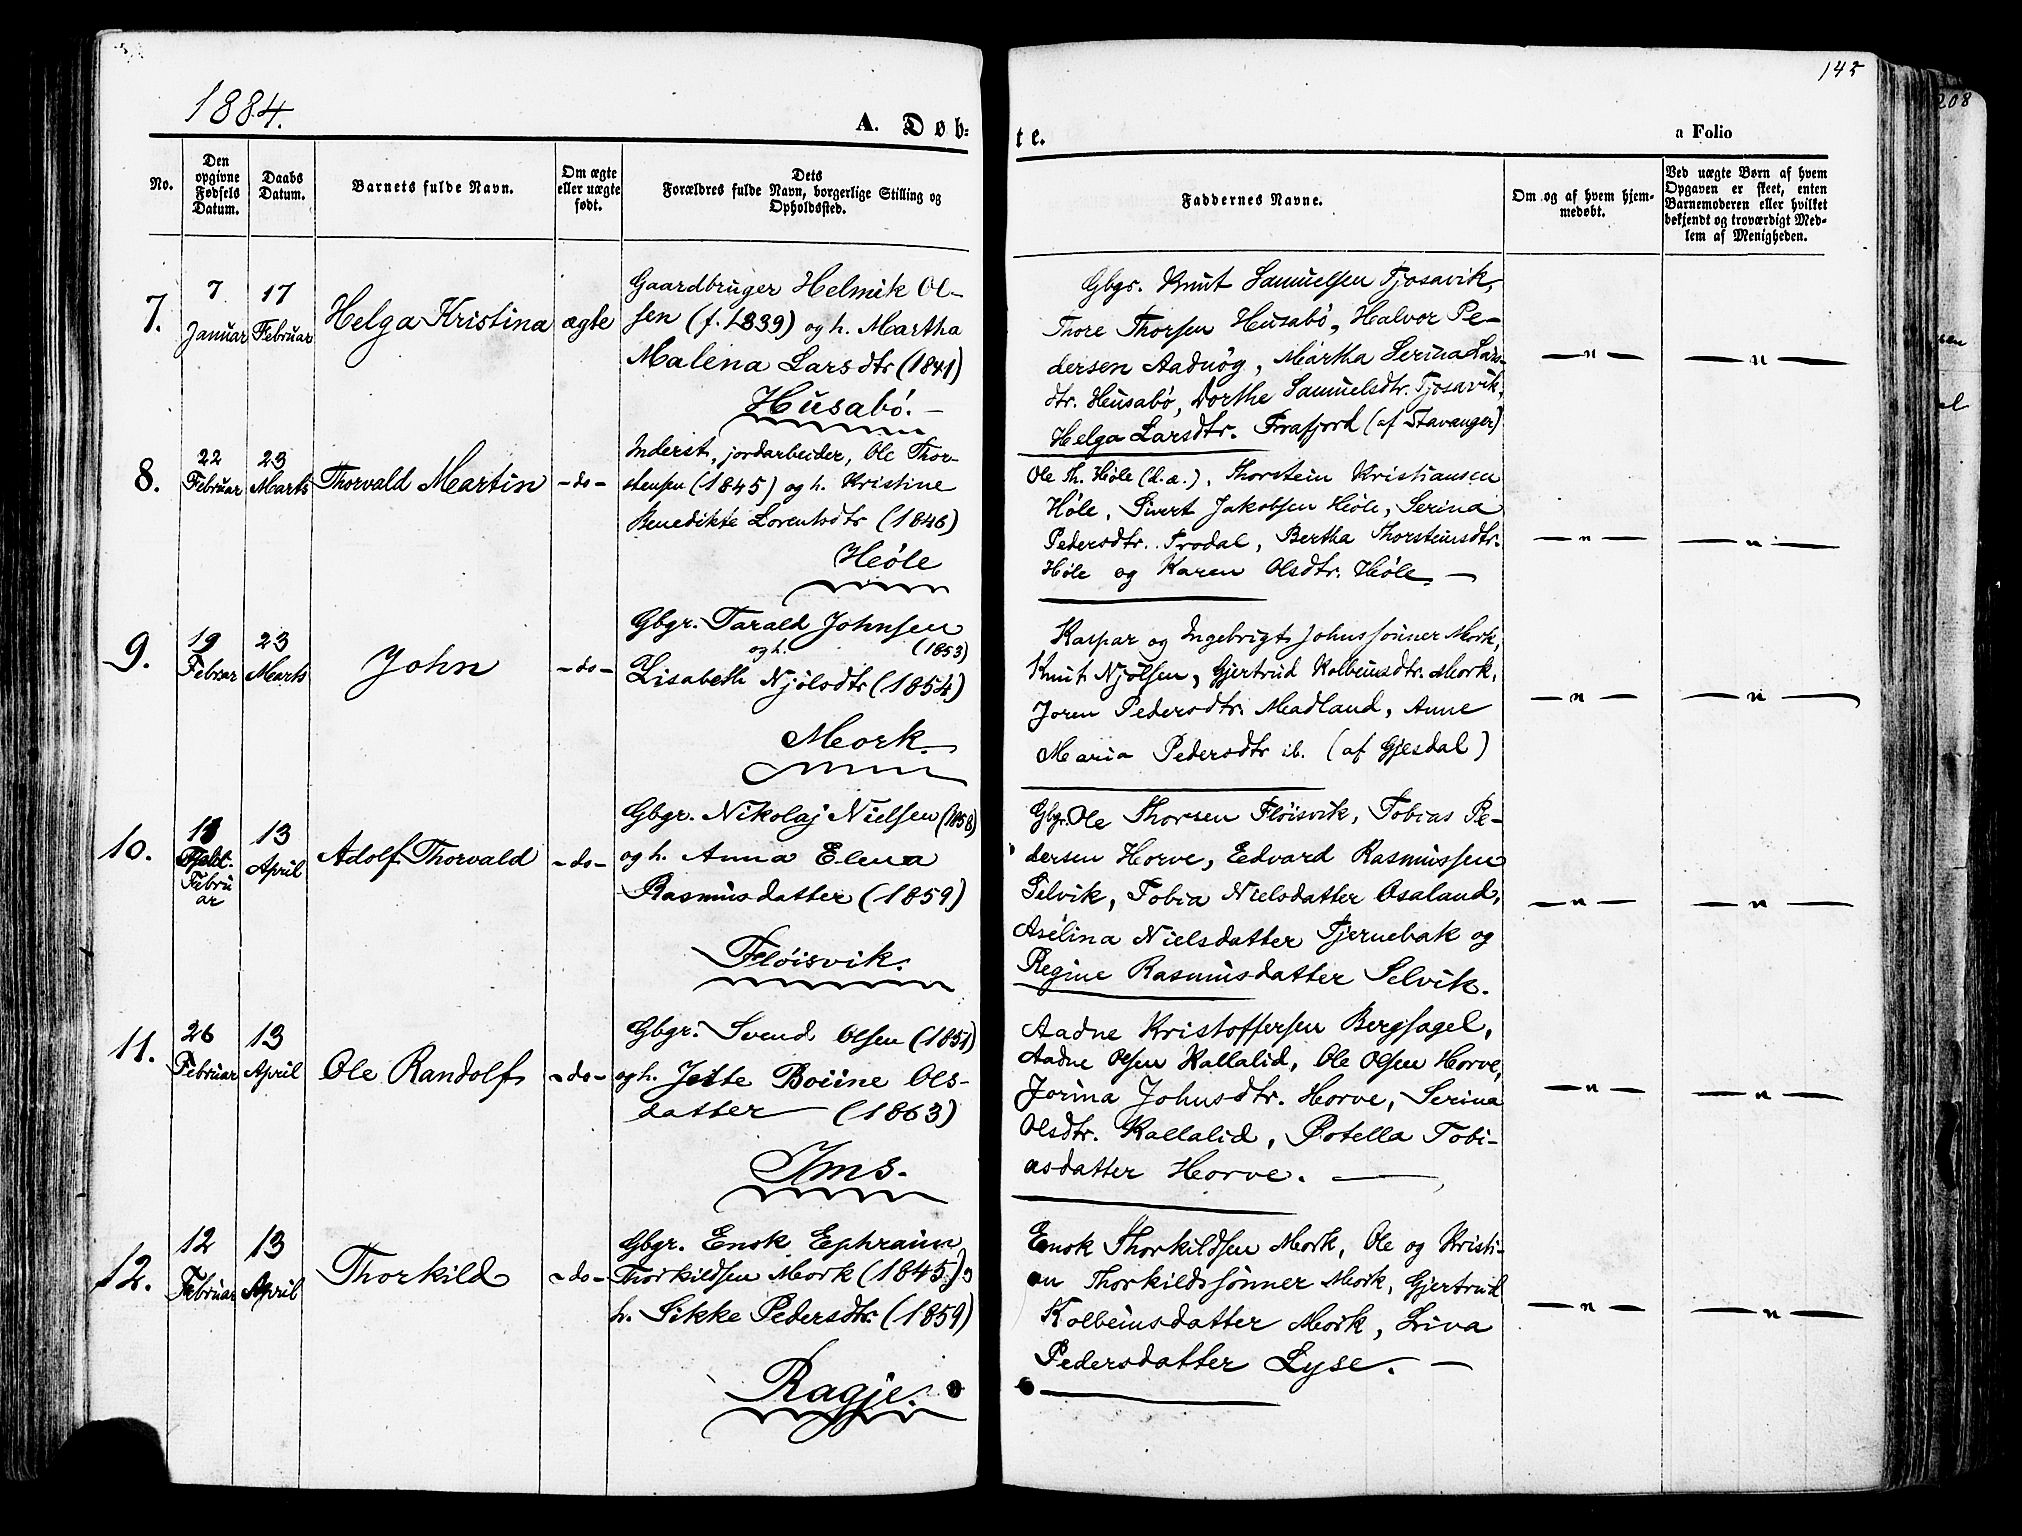 145
208
1884.
A. Døb-
te.
a Folio
No.
Den opgivne Fødsels Datum.
Daabs Datum.
Barnets fulde Navn.
Om ægte eller uægte født.
Dets Forældres fulde Navn, borgerlige Stilling og Opholdssted.
Faddernes Navne.
Om og af hvem hjemmedøbt.
Ved uægte Børn af hvem Opgaven er skeet, enten Barnemoderen eller hvilket bekjendt og troværdigt Medlem af Menigheden.
7.
7 Januar
17 Februar
Helga Kristina
ægte
Gaardbruger Helmik Ol-
sen (f. 1839) og h. Martha
Malena Larsdtr (1841)
Husabø. –
Gbgs. Knut Samuelsen Tjosavik,
Thore Thorsen Husabø, Halvor Pe-
dersen Aadnøg, Martha Serina Lars-
dtr. Husabø, Dorthe Samuelsdtr. Tjosavik,
Helga Larsdtr. Frafjord (af Stavanger)
— " —
— " —
8.
22 Februar
23 Marts
Thorvald Martin
– do –
Inderst, jordarbeider, Ole Thor-
stensen (1845) og h. Kristine
Benedikte Lorentsdtr (1846)
Høle
Ole Th. Høle (d.æ.), Thorstein Kristiansen
Høle, Sivert Jakobsen Høle, Serina
Pedersdtr. Frodal, Bertha Thorsteinsdtr.
Høle og Karen Olsdtr. Høle. —
— " —
— " —
9.
19 Februar
23 Marts
John
– do –
Gbgr. Tarald Johnsen
og h. (1853)
Lisabeth Njølsdtr (1854)
Mork.
Kaspar og Ingebrigt Johnssønner Mork,
Knut Njølsen, Gjertrud Kolbeinsdtr. Mork,
Joren Pedersdtr. Madland, Anne
Maria Pedersdtr ib. (af Gjesdal)
— " —
— " —
10.
18
Febru
ar
13 April
Adolf Thorvald
– do –
Gbgr. Nikolaj Nielsen (1858)
og h. Anna Elena
Rasmusdatter (1859)
Fløisvik.
Gbgr. Ole Thorsen Fløisvik, Tobias Pe-
dersen Horve, Edvard Rasmussen
Selvik, Tobia Nielsdatter Osaland,
Aselina Nielsdatter Tjernebak og
Regine Rasmusdatter Selvik.
— " —
— " —
11.
26 Februar
13 April
Ole Randolf
– do –
Gbgr. Svend Olsen (1851)
og h. Jette Boiine Ols-
datter — (1863)
Ims.
Aadne Kristoffersen Bergsagel,
Aadne Olsen Kallalid, Ole Olsen Horve,
Jorina Johnsdtr. Horve, Serina
Olsdtr. Kallalid, Botella Tobi-
asdatter Horve. —
— " —
— " —
12.
12 Februar
13 April
Thorkild
– do –
Gbgr. Enok Ephraim
Thorkildsen Mork (1845) og
h. Sikke Pedersdtr. (1859)
Ragje.
Enok Thorkildsen Mork, Ole og Kristi-
an Thorkildssønner Mork, Gjertrud
Kolbeinsdatter Mork, Liva
Pedersdatter Lyse. —
— " —
— " —